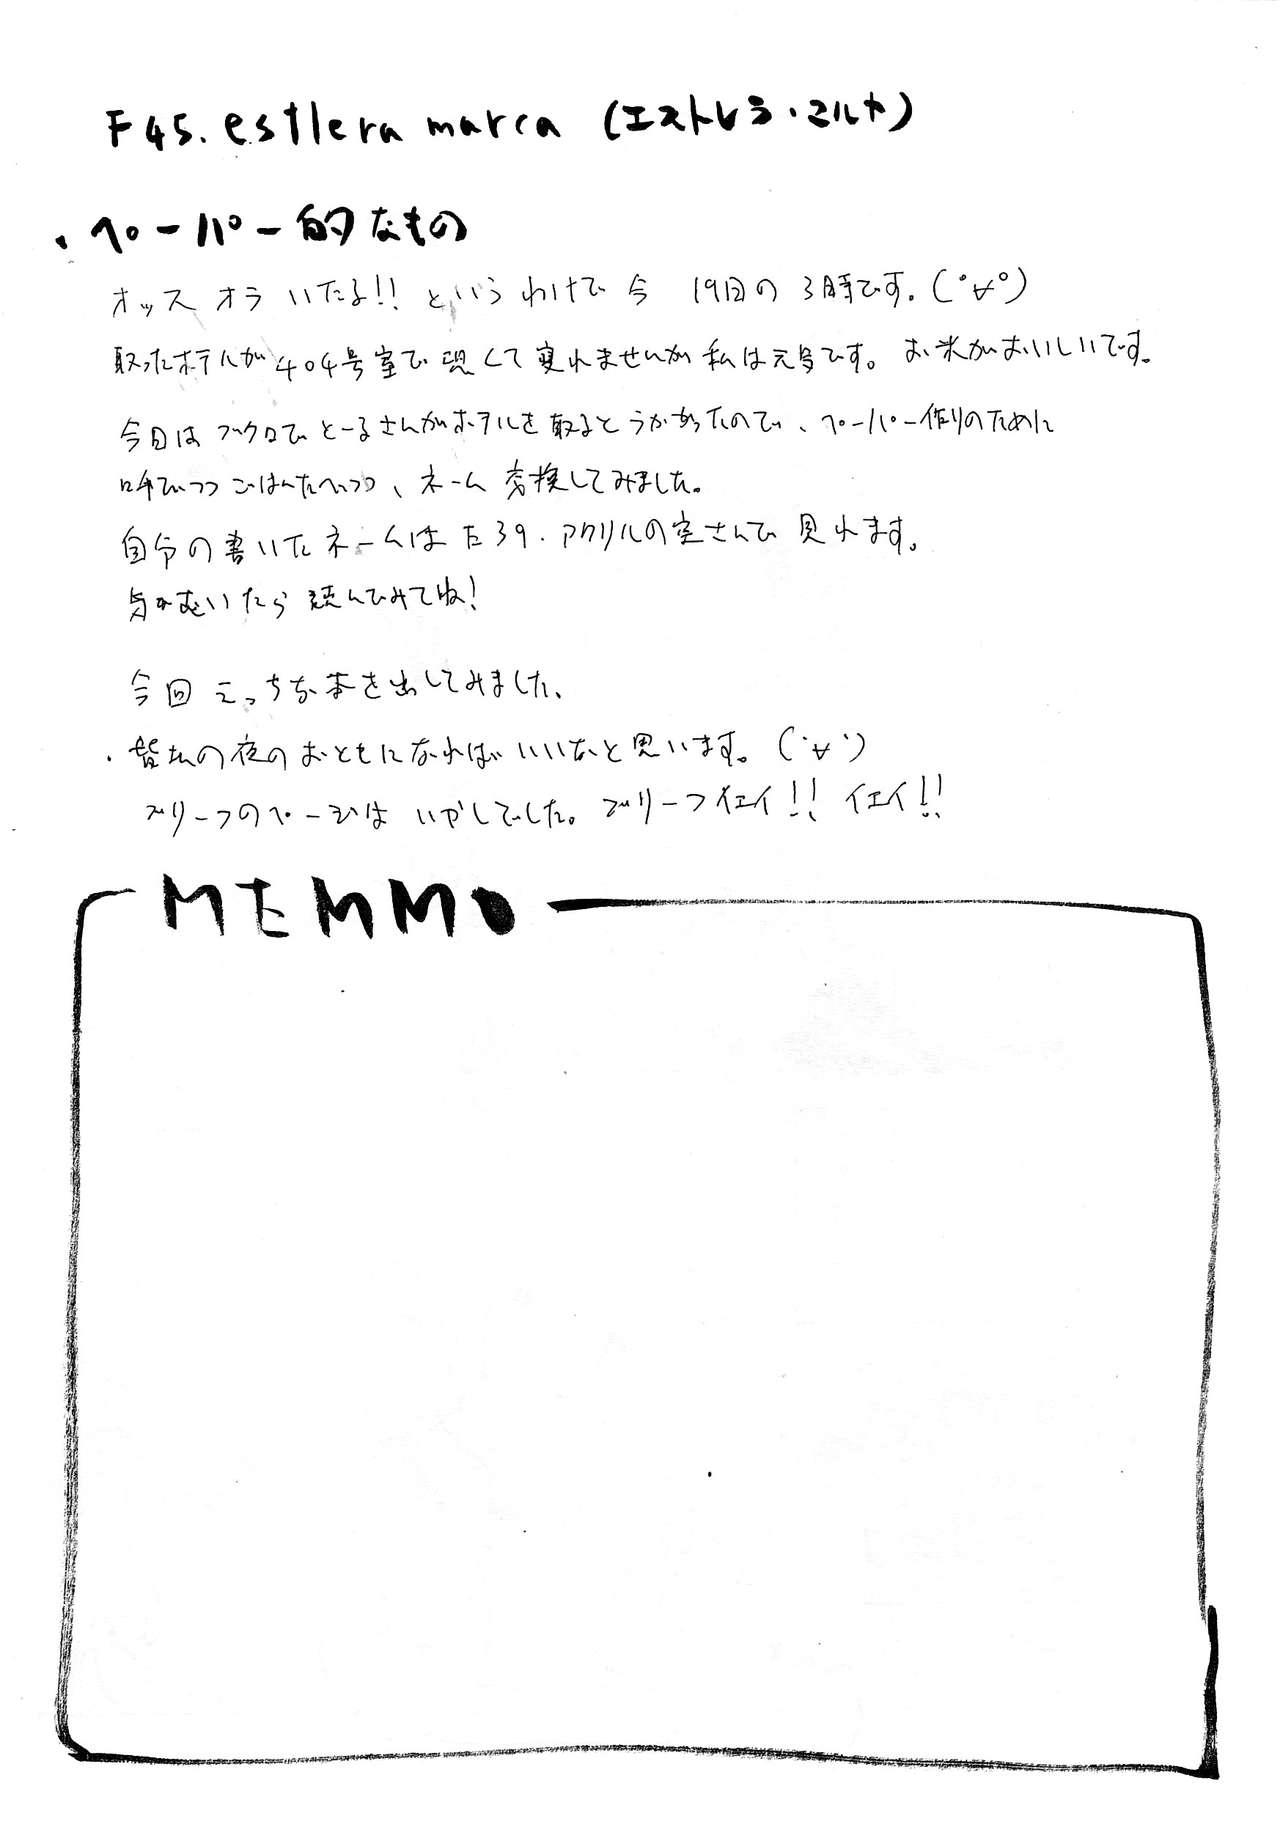 F45. estlera marca (エストレラ・マルカ)
・ペーパー的なもの
オッス オラ いたる!! というわけで 今 19日の 3時です。(゜∀゜)
取ったホテルが404号室で 恐くて寝れませんが 私は元気です。お米がおいしいです。
今日は ブクロで とーるさんがホテルを取るとうかがったので、ペーパー作りのために
呼びつつ ごはんたべつつ、ネーム 交換してみました。
自分の書いたネームは た39. アクリルの空さんで 見れます。
気がむいたら 読んでみてね!
今回 えっちな本を出してみました、
・皆んの夜のおともになればいいなと思います。(・∀・)
ブリーフのページは いかしてでした。ブリーフイエイ!! イエイ!!
MEMMO